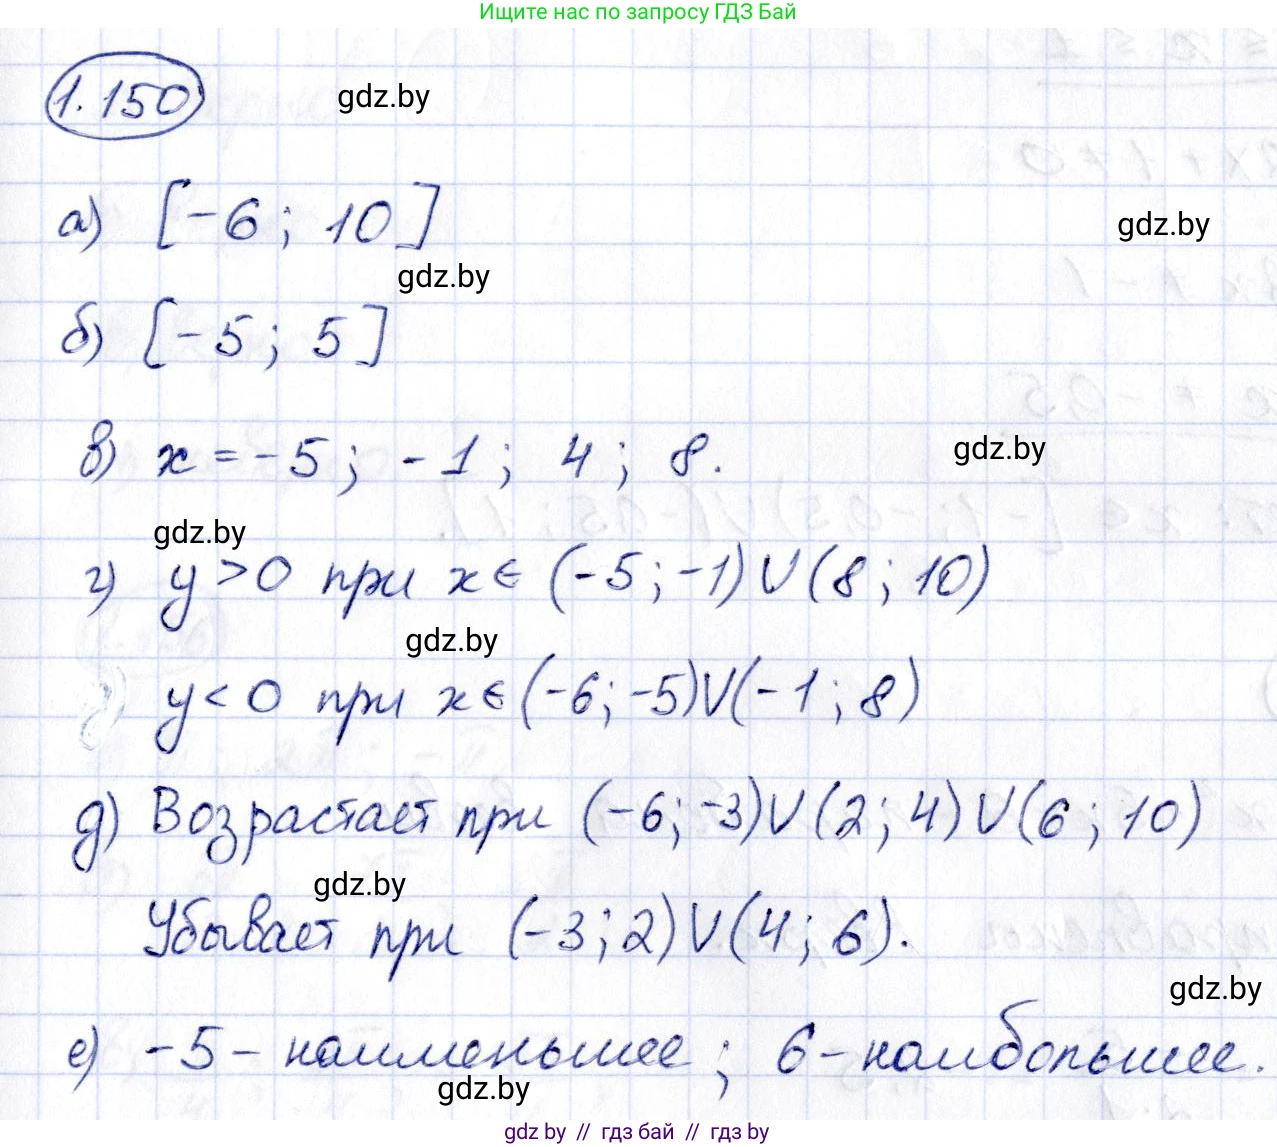 Ищите нас по запросу ГДЗ Бай
1.150
gdz.by
а) [-6; 10]
gdz.by
gdz.by
б) [-5; 5]
в) x = -5; -1; 4; 8.
gdz.by
gdz.by
г) y > 0 при x ∈ (-5; -1) ∪ (8; 10)
gdz.by
y < 0 при x ∈ (-6; -5) ∪ (-1; 8)
д) Возрастает при (-6; -3) ∪ (2; 4) ∪ (6; 10)
gdz.by
Убывает при (-3; 2) ∪ (4; 6).
gdz.by
е) -5 - наименьшее; 6 - наибольшее.
gdz.by
gdz by // гдз бай // гдз by